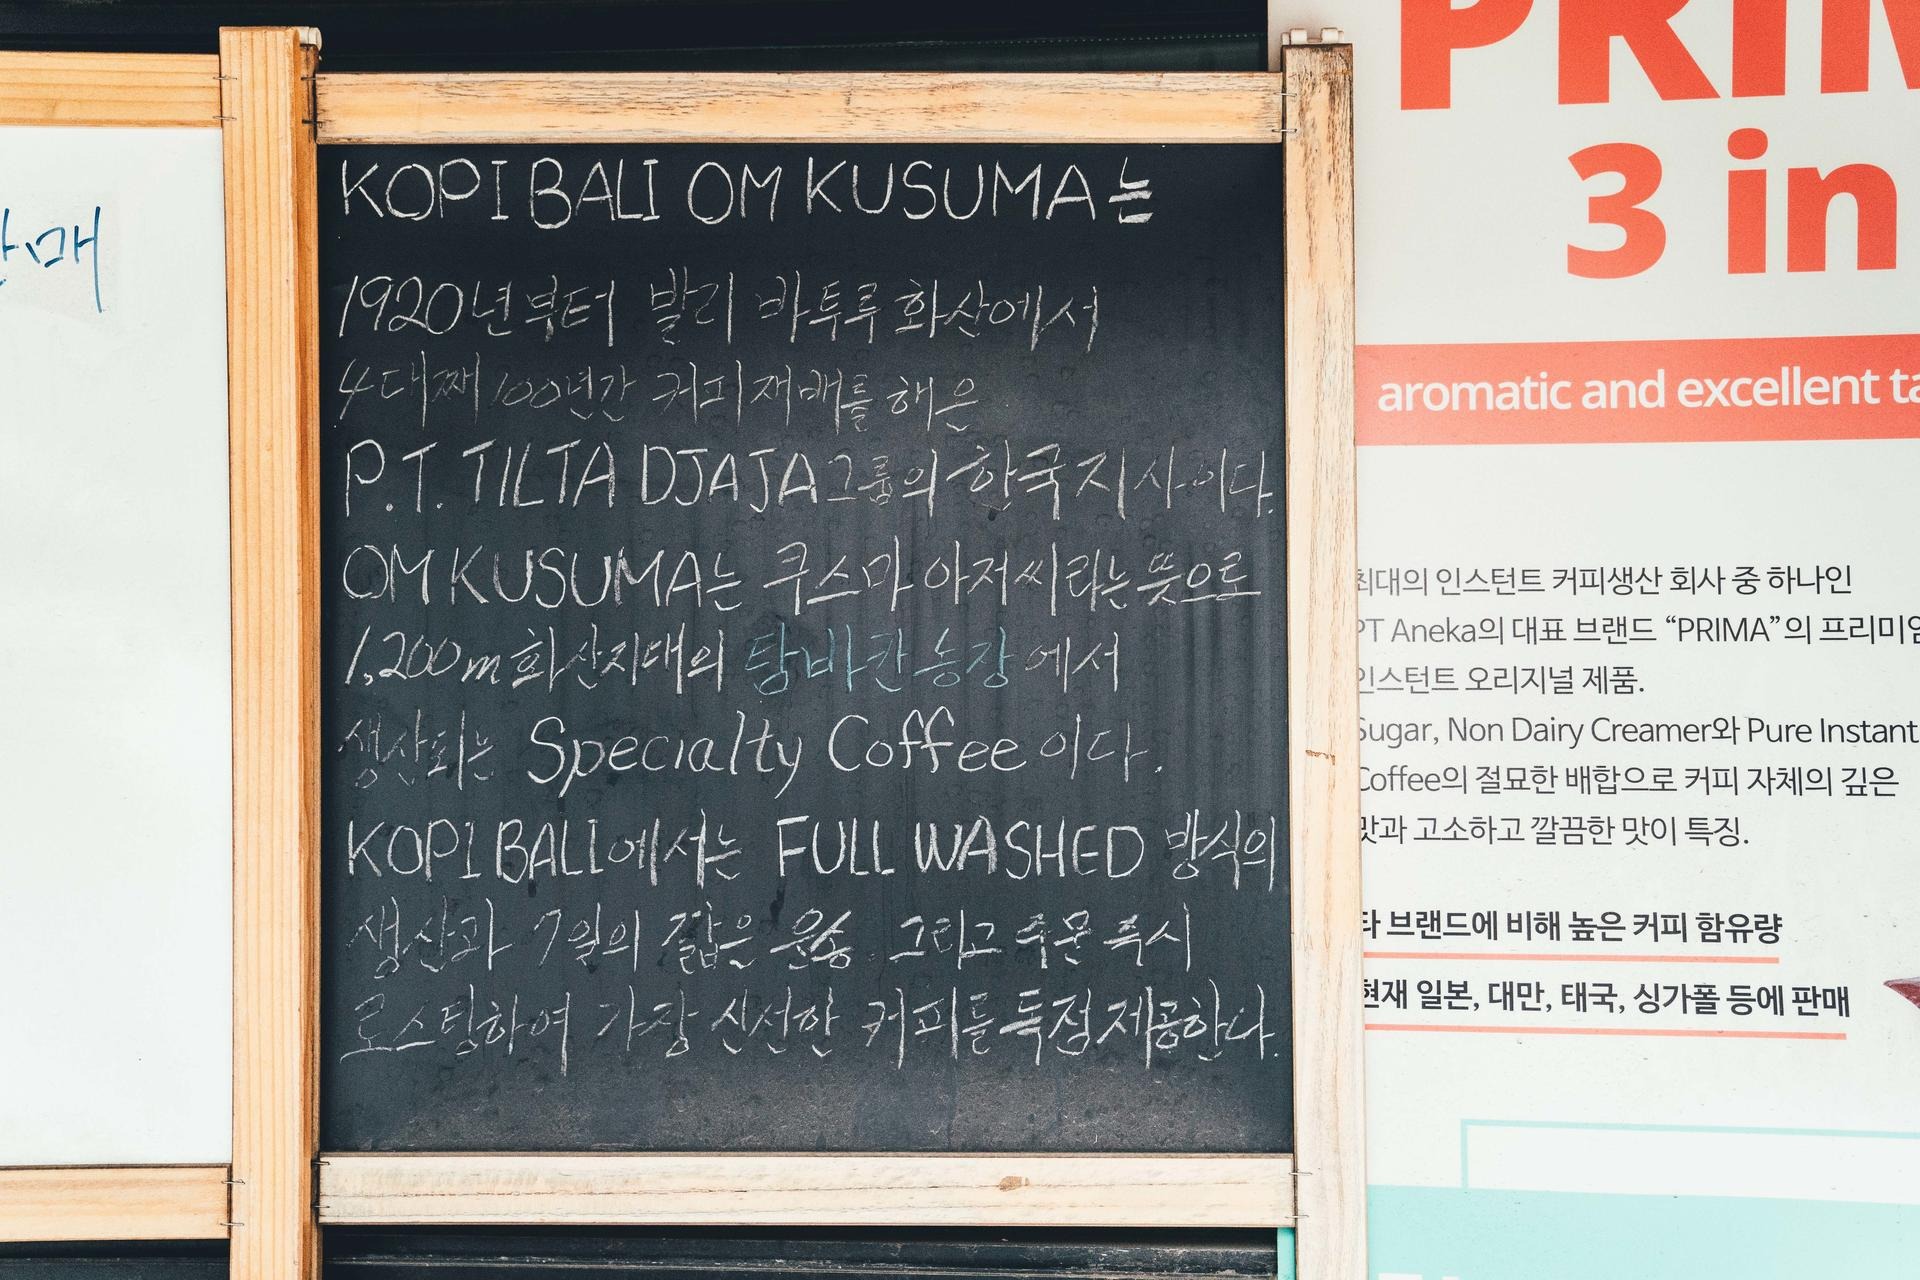 판매
KOPI BALI OM KUSUMA는
1920년부터 발리 바투루 화산에서
4대째 100년간 커피재배를 해온
P.T. TILTA DJAJA그룹의 한국지사이다.
OM KUSUMA는 쿠스마 아저씨라는 뜻으로
1,200m화산지대의 탐바칸농장에서
생산되는 Specialty Coffee이다.
KOPI BALI에서는 FULL WASHED 방식의
생산과 7일의 짧은 운송 그리고 주문 즉시
로스팅하여 가장 신선한 커피를 특점제공한다.
PRIM
3 in
aromatic and excellent ta
최대의 인스턴트 커피생산 회사 중 하나인
PT Aneka의 대표 브랜드 “PRIMA”의 프리미엄
인스턴트 오리지널 제품.
Sugar, Non Dairy Creamer와 Pure Instant
Coffee의 절묘한 배합으로 커피 자체의 깊은
맛과 고소하고 깔끔한 맛이 특징.
타 브랜드에 비해 높은 커피 함유량
현재 일본, 대만, 태국, 싱가폴 등에 판매